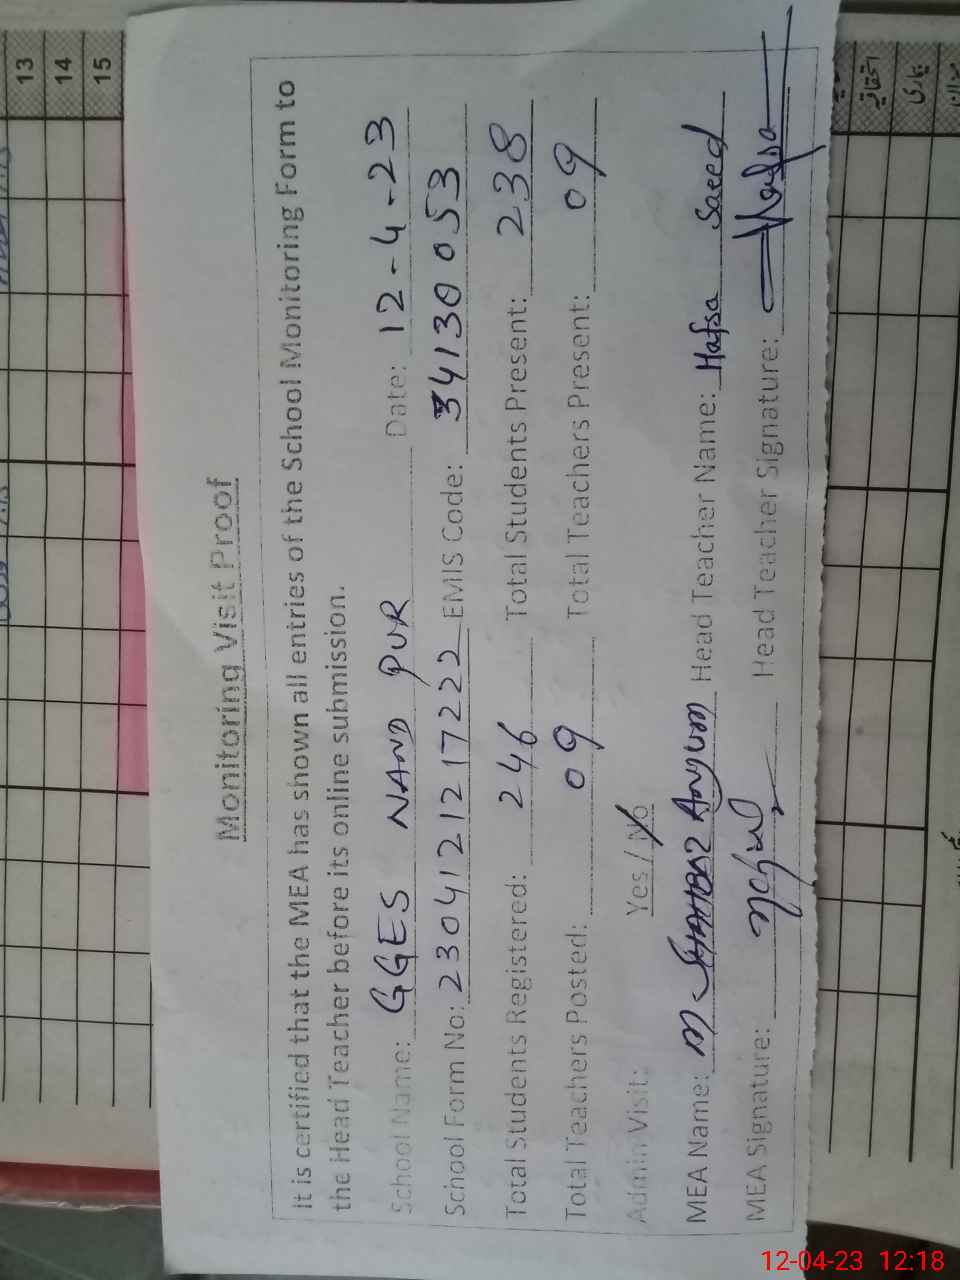 Monitoring Visit Proof
It is certified that the MEA has shown all entries of the School Monitoring Form to
the Head Teacher before its online submission.
School Name: GGES NAND PUR Date: 12-4-23
School Form No: 230412121217222 EMIS Code: 34130053
Total Students Registered: 246 Total Students Present: 238
Total Teachers Posted: 09 Total Teachers Present: 09
Admin Visit: Yes / No
MEA Name: Head Teacher Name: Hafsa Saeed
MEA Signature: Head Teacher Signature: Hafsa
13
14
15
12-04-23 12:18